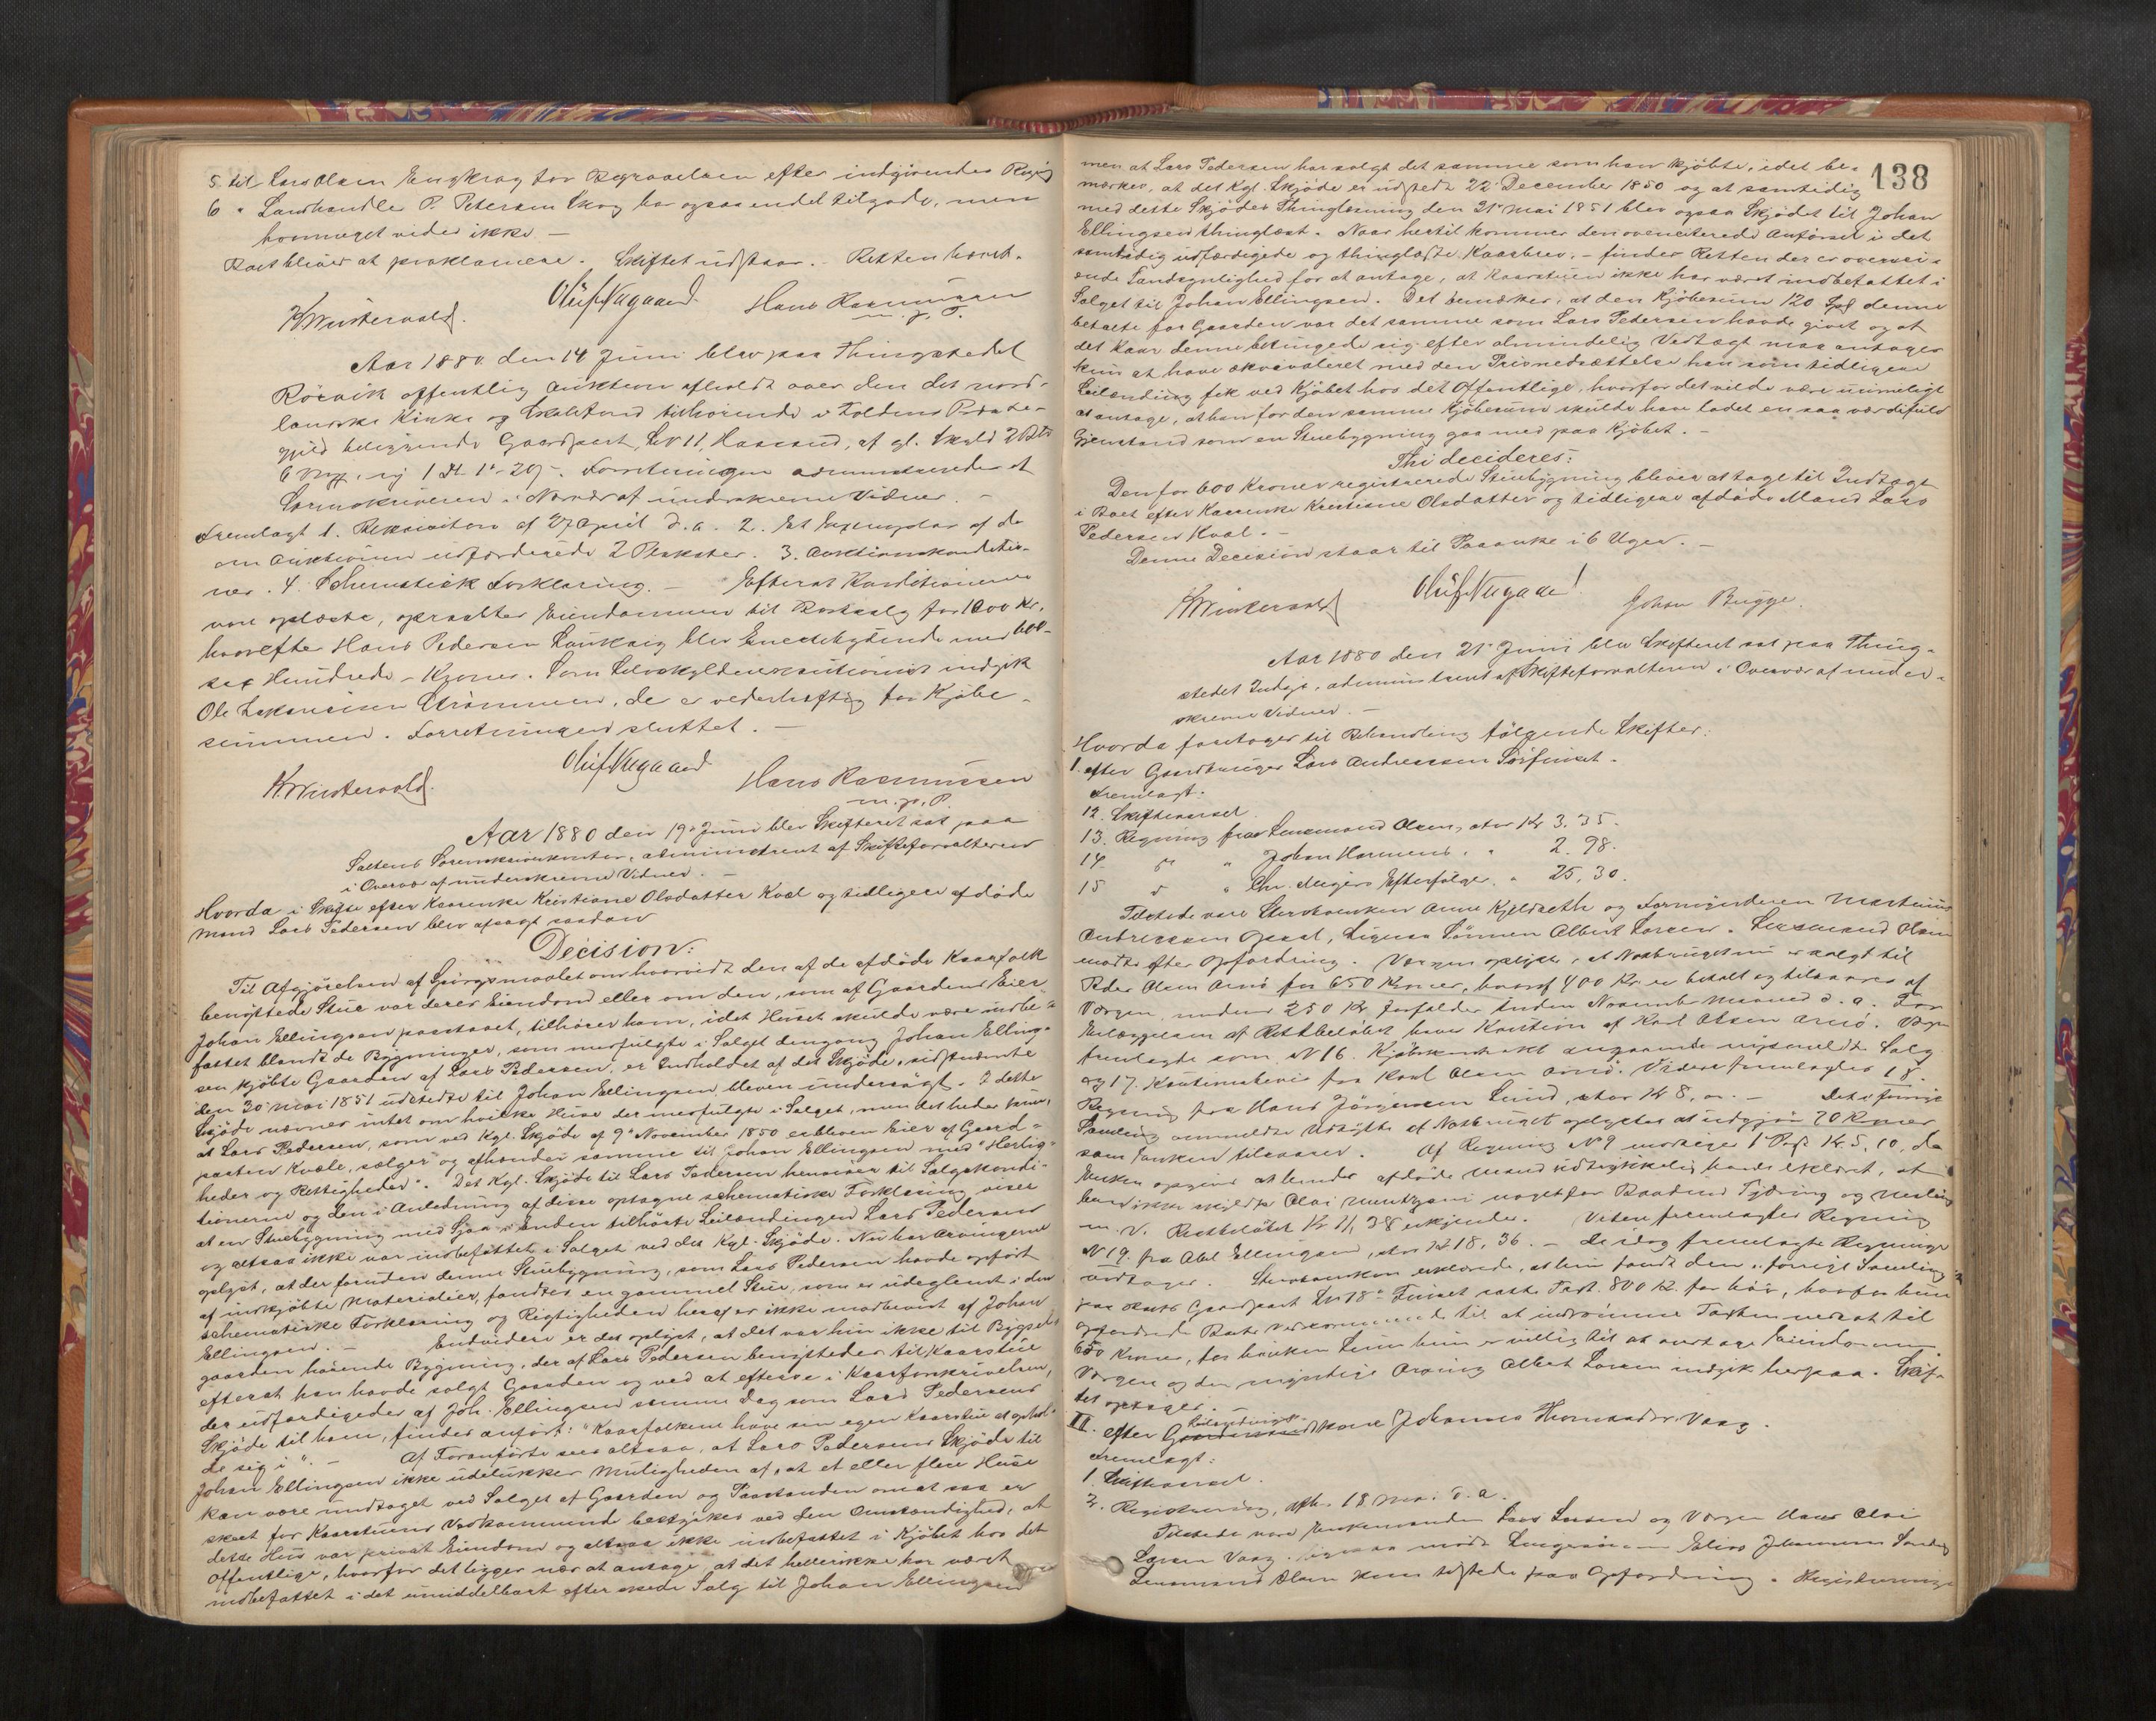 5 til Lars Olsen Engkrog for Begravelsen efter indgivendes Regng
6 " Landhandler P. Petersen Skog har ogsaa endel tilgode, men
hvormeget vides ikke. —
Boet bliver at proklamere. Skiftet udstaar. Retten hævet.
Oluf Nygaard Hans Rasmussen
m. p. P.
Aar 1880 den 14 Juni blev paa Thingstedet
Rösvik offentlig Auktion afholdt over den det nord-
lanske Kirke og Skolefond tilhörende i Foldens Præste-
gjeld beliggende Gaardpart, Lnr 11, af gl. Skyld 2
6 ny 1 Forretningen administreredes af
Sorenskriveren i Nærvær af underskrevne Vidner. —
Fremlagt 1. Rekvisition af 27 April d. a. 2. Et Exemplar af de
om Auktionen udfærdigede 2 Plakater. 3. Auktionskonditio-
ner. 4. Schematisk Forklaring. — Efterat Konditionerne
vare oplæste, opraabtes Eiendommen til Bortsalg for 1000 Kr.
hvorefter Hans Pedersen blev Enestebydende med 600 -
sex Hundrede - Kroner. Som Selvskyldnerkautionist indgik
Ole Zakariasen Strömmen, der er vederhæftig for Kjöbe-
summen. Forretningen sluttet. —
Oluf Nygaard
Hans Rasmussen
m. p. P.
Aar 1880 den 19de Juni blev Skifteret sat paa
Saltens Sorenskriverkontor, administreret af Skifteforvalteren
i Overvær af underskrevne Vidner. —
Hvorda i Skifte efter Karenke Kristiane Olsdatter Kval og tidligere afdöde
Mand Lars Pedersen blev afsagt saadan
Decision:
Til Afgjörelsen af Spörgsmaalet om hvorvidt den af de afdöde Kaarfolk
benyttede Stue var deres Eiendom eller om den, som af Gaardens Eier
Johan Ellingsen paastaaet, tilhörer ham, idet Huset skulde være indbe-
fattet blandt de Bygninger, som medfulgte i Salget dengang Johan Elling-
sen kjöbte Gaarden af Lars Pedersen, er Indholdet af det Skjöde, sidstnævnte
den 30 Mai 1851 udstedte til Johan Ellingsen bleven undersögt. I dette
Skjöde nævnes intet om hvilke Huse der medfulgte i Salget, men det heder kun,
at Lars Pedersen, som ved Kgl. Skjöde af 9de November 1850 er bleven Eier af Gaard-
parten Kvale, sælger og afhænder samme til Johan Ellingsen med "Herlig-
heder og Rettigheder". Det Kgl. Skjöde til Lars Pedersen henviser til Salgskondi-
tionerne og den i Anledning af disse optagne schematiske Forklaring viser
at en Stuebygning med tilhörte Leilændingen Lars Pedersen
og altsaa ikke var indbefattet i Salget ved det Kgl. Skjöde. Nu har Arvingerne
oplyst, at der foruden denne Stuebygning, som Lars Pedersen havde opfört
af indkjöbte Materialier, fandtes en gammel Stue, som er udeglemt i den
schematiske Forklaring og Rigtigheden heraf er ikke modbevist af Johan
Ellingsen. — Endvidere er det oplyst, at det var hin ikke til Bygsel-
gaarden hörende Bygning, der af Lars Pedersen benyttedes til Kaarstue
efterat han havde solgt Gaarden og ved at eftersee i Kaarforskrivelsen,
der udfærdigedes af Joh. Ellingsen samme Dag som Lars Pedersens
Skjöde til ham, findes anfört: "Kaarfolkene have sin egen Kaarstue at ophol-
de sig i". — Af Foranförte sees altsaa, at Lars Pedersens Skjöde til
Johan Ellingsen ikke udelukker Muligheden af, at et eller flere Huse
kan være undtaget ved Salget af Gaarden og Paastanden om at saa er
skeet for Kaarstuens Vedkommende bestyrkes ved den Omstændighed, at
dette Hus var privat Eiendom og altsaa ikke indbefattet i Kjöbet hos det
Offentlige, hvorfor det ligger nær at antage, at det hellerikke har været
indbefattet i det umiddelbart efter skede Salg til Johan Ellingsen
138
men at Lars Pedersen har solgt det samme som han kjöbte, idet be-
mærkes, at det Kgl. Skjöde er udstedt 22 December 1850 og at samtidig
med dette Skjödes Thinglæsning den 21de Mai 1851 blev ogsaa Skjödet til Johan
Ellingsen thinglæst. Naar hertil kommer den ovenciterede Anförsel i det
samtidig udfærdigede og thinglæste Kaarbrev, - finder Retten der er overvei-
ende Sandsynlighed for at antage, at Kaarstuen ikke har været indbefattet i
Salget til Johan Ellingsen. Det bemærkes, at den Kjöbesum 120 Spd denne
betalte for Gaarden var det samme som Lars Pedersen havde givet og at
det Kaar denne betingede sig efter almindelig Vedtægt maa antages
kun at have ækvivaleret med den Prisnedsættelse han som tidligere
Leilænding fik ved Kjöbet hos det Offentlige, hvorfor det vilde være urimeligt
at antage, at han for den samme Kjöbesum skulde have ladet en saa værdifuld
Gjenstand som en Stuebygning gaa med paa Kjöbet. —
Thi decideres:
Den for 600 Kroner registrerede Stuebygning bliver at tage til Indtægt
i Boet efter Karenke Kristiane Olsdatter og tidligere afdöde Mand Lars
Pedersen Kval. —
Denne Decision staar til Paaanke i 6 Uger. —
Oluf Nygaard
Johan Bugge.
Aar 1880 den 21de Juni blev Skifteret sat paa Thing-
stedet administreret af Skifteforvalteren i Overvær af under-
skrevne Vidner. —
Hvorda foretages til Behandling fölgende Skifter:
1. efter Gaardbruger Lars Andreassen Sörfinset.
Fremlagt:
12. Skiftevarsel.
13. Regning fra Lensmand Olsen, stor Kr. 3.35.
14 " " Johan Harmens, " 2.98.
15 " " Chr. Efterfölger. " 25,30.
Tilstede vare Stervboenken Anne Kjeldseth og Formynderen Martinus
Andreassen Opsal, Ligesaa Sönnen Albert Larsen. Lensmand Olsen
mödte efter Opfordring. Værgen oplyste, at Notbruget nu er solgt til
Peder Olsen Arnö for 650 Kroner, hvoraf 400 Kr. er betalt og tilsvares af
Værgen, medens 250 Kr. forfalder inden November Maaned d. a. For
Erlæggelsen af Restbelöbet haves Kaution af Karl Olsen Arnö. Værgen
fremlagte som N 16. Kjöbekontrakt angaaende nysmeldte Salg
og 17. Kautionsbevis fra Karl Olsen Arnö. Videre fremlagdes 18.
Regning fra Hans Jörgensen Lund, stor Kr 8, — Det i forrige
Samling ommeldte Udbytte af Notbruget oplystes at udgjöre 70 Kroner
som Enken tilsvarer. Af Regning N 9 modsiges 1 Post Kr. 5,10, da
Enken opgiver at hendes afdöde Mand udtrykkelig havde erklæret, at
han ikke skyldte Olai noget for Baadens
m. V. Restbelöbet Kr 11,38 erkjendes. Videre fremlagdes Regning
N 19. fra Abel Ellingsen, stor Kr 18,36. — De idag fremlagte Regninger
vedtages. Stervboenken erklærede, at hun fandt den i forrige Samling
paa Boets Gaardpart Lnr 18a Finset satte Taxt 800 Kr. for höi, hvorfor hun
opfordrede Boets Vedkommende til at indrömme Taxten nedsat til
650 Kroner, for hvilken Sum hun er villig til at overtage Eiendommen.
Værgen og den myndige Arving Albert Larsen indgik herpaa. Skif-
tet optages.
II. efter Leilændings-kone Johanna Vaag.
Fremlagt:
1. Skiftevarsel.
2. Registrering, afh. 18 Mai d. a.
Tilstede vare Enkemanden Lars Larsen og Værgen Hans Olai
Larsen Vaag. Elias Johannesen
Lensmand Olsen kom tilstede paa Opfordring.